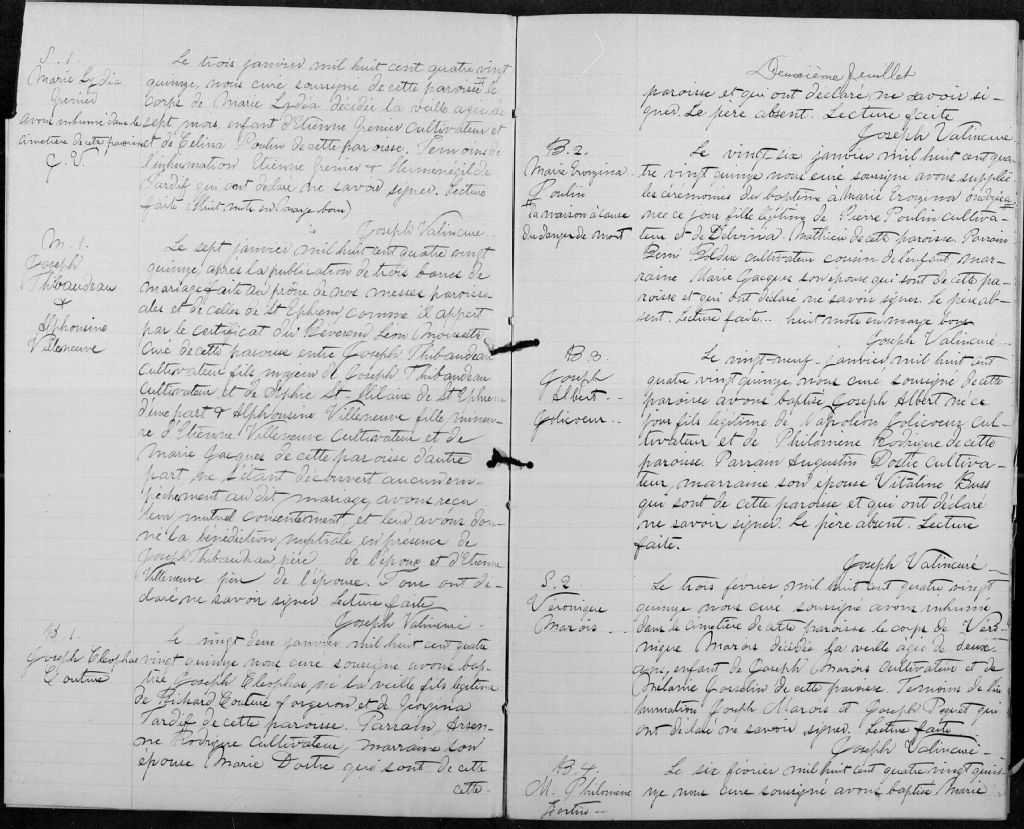 S. 1.
Marie Lydia
Grenier
avons inhumé dans le
cimetière de cette paroisse
J. V.
Le trois janvier mil huit cent quatre vingt
quinze, nous curé soussigné de cette paroisse le
corps de Marie Lydia décédée la veille agée de
sept mois, enfant d'Etienne Grenier cultivateur et
et de Celina Poulin de cette paroisse. Temoins de
l'inhumation Etienne Grenier & Hermenegilde
Tardif qui ont déclaré ne savoir signer. Lecture
faite. (Huit mots en marge bons)
Joseph Valin curé
M. 1.
Joseph
Thibaudeau
&
Alphonsine
Villeneuve
Le sept janvier mil huit cent quatre vingt
quinze, après la publication de trois bancs de
mariage fait au prône de nos messes paroissi-
ales et de celles de St Ephrem comme il appert
par le certificat du Révérend Léon
curé de cette paroisse entre Joseph Thibaudeau
cultivateur fils majeur de Joseph Thibaudeau
cultivateur et de Sophie St-Hilaire de St Ephrem
d'une part & Alphonsine Villeneuve fille mineu-
re d'Etienne Villeneuve cultivateur et de
Marie Jacques de cette paroisse d'autre
part, ne s'étant découvert aucun em-
pêchement au dit mariage, avons reçu
leur mutuel consentement et leur avons don-
né la bénédiction nuptiale en présence de
Joseph Thibaudeau, père de l'époux et d'Etienne
Villeneuve père de l'épouse. Tous ont dé-
claré ne savoir signer. Lecture faite
Joseph Valin curé
B. 1.
Joseph Cléophas
Couture
Le vingt deux janvier mil huit cent quatre
vingt quinze nous curé soussigné avons bap-
tisé Joseph Cleophas, né la veille fils légitime
de Richard Couture forgeron et de Géorgina
Tardif de cette paroisse. Parrain, Arsen-
ne Rodrigue cultivateur, marraine son
épouse Marie Dostie qui sont de cette
cette
Deuxième feuillet
paroisse et qui ont déclaré ne savoir si-
gner. Le père absent. Lecture faite
Joseph Valin curé
B. 2.
Marie
Poulin
à la maison à cause
du danger de mort
Le vingt six janvier mil huit cent qua-
tre vingt quinze nous curé soussigné avons suppléé
les cérémonies du baptême à Marie ondoyée
née ce jour fille légitime de Pierre Poulin cultiva-
teur et de Delvina Mathieu de cette paroisse. Parrain
Remi Bolduc cultivateur cousin de l'enfant mar-
raine Marie Jacques son épouse qui sont de cette pa-
roisse et qui ont déclaré ne savoir signer. Le père ab-
sent. Lecture faite.. huit mots en marge bons
Joseph Valin curé
B. 3.
Joseph
Albert
Jolicoeur
Le vingt neuf janvier mil huit cent
quatre vingt quinze, nous curé soussigné de cette
paroisse avons baptisé Joseph Albert né ce
jour fils légitime de Napoléon Jolicoeur cul-
tivateur et de Philomène Rodrigue de cette
paroisse. Parrain Augustin Dostie cultiva-
teur, marraine son épouse Vitaline Buss
qui sont de cette paroisse et qui ont déclaré
ne savoir signer. Le père absent. Lecture
faite.
Joseph Valin curé
S. 2.
Véronique
Marois
Le trois février mil huit cent quatre vingt
quinze nous curé soussigné avons inhumé
dans le cimetière de cette paroisse le corps de Véro-
nique Marois décédée la veille agée de deux
ans, enfant de Joseph Marois cultivateur et de
Mélanie Gosselin de cette paroisse. Temoins de l'in-
humation Joseph Marois et Joseph qui
ont déclaré ne savoir signer. Lecture faite
Joseph Valin curé
B. 4.
M. Philomène
Fortin
Le six février mil huit cent quatre vingt quin-
ze nous curé soussigné avons baptisé Marie